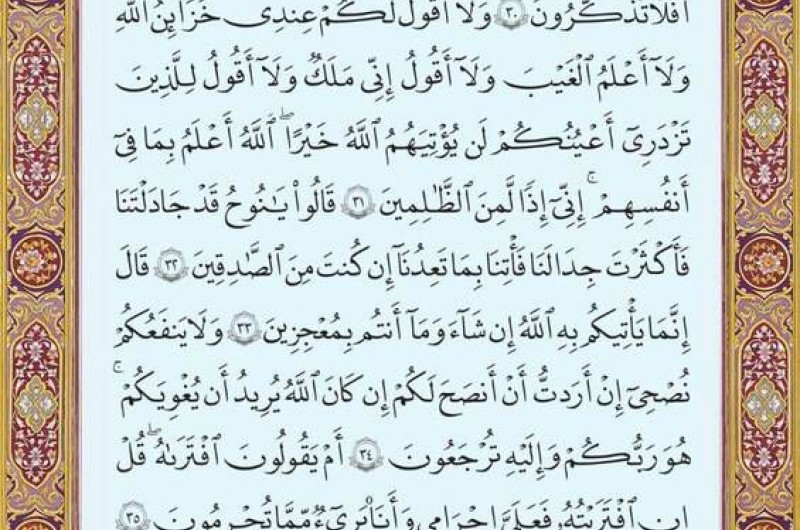 أَفَلَا تَذَكَّرُونَ ٣٠ وَلَا أَقُولُ لَكُمْ عِندِى خَزَآئِنُ ٱللَّهِ
وَلَآ أَعْلَمُ ٱلْغَيْبَ وَلَآ أَقُولُ إِنِّى مَلَكٌ وَلَآ أَقُولُ لِلَّذِينَ
تَزْدَرِىٓ أَعْيُنُكُمْ لَن يُؤْتِيَهُمُ ٱللَّهُ خَيْرًا ۖ ٱللَّهُ أَعْلَمُ بِمَا فِىٓ
أَنفُسِهِمْ ۚ إِنِّىٓ إِذًا لَّمِنَ ٱلظَّٰلِمِينَ ٣١ قَالُوا۟ يَٰنُوحُ قَدْ جَٰدَلْتَنَا
فَأَكْثَرْتَ جِدَٰلَنَا فَأْتِنَا بِمَا تَعِدُنَآ إِن كُنتَ مِنَ ٱلصَّٰدِقِينَ ٣٢ قَالَ
إِنَّمَا يَأْتِيكُم بِهِ ٱللَّهُ إِن شَآءَ وَمَآ أَنتُم بِمُعْجِزِينَ ٣٣ وَلَا يَنفَعُكُمْ
نُصْحِىٓ إِنْ أَرَدتُّ أَنْ أَنصَحَ لَكُمْ إِن كَانَ ٱللَّهُ يُرِيدُ أَن يُغْوِيَكُمْ ۚ
هُوَ رَبُّكُمْ وَإِلَيْهِ تُرْجَعُونَ ٣٤ أَمْ يَقُولُونَ ٱفْتَرَىٰهُ ۖ قُلْ
إِنِ ٱفْتَرَيْتُهُۥ فَعَلَىَّ إِجْرَامِى وَأَنَا۠ بَرِىٓءٌ مِّمَّا تُجْرِمُونَ ٣٥